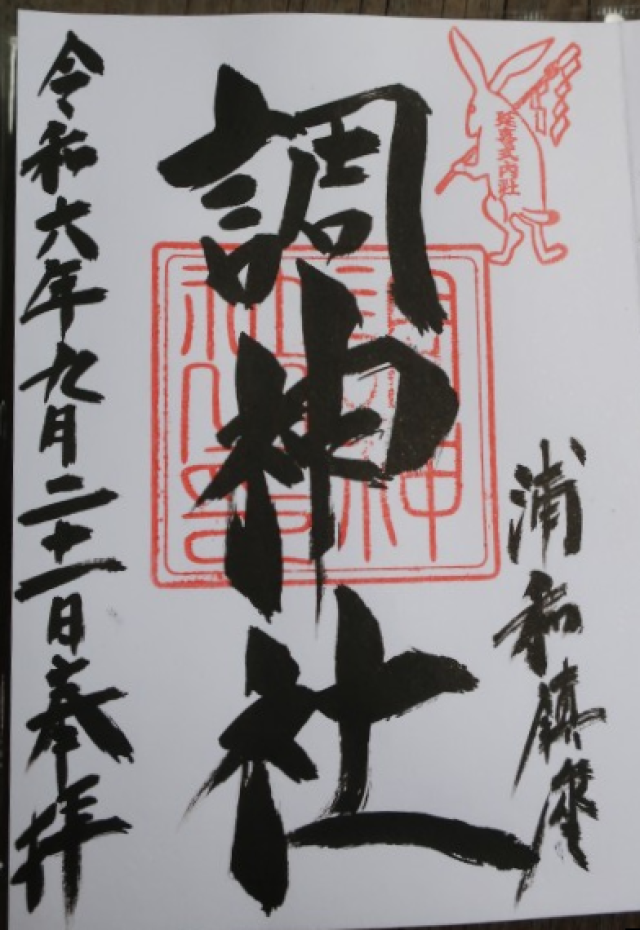 延喜式内社
浦和鎮座
調神社
令和六年九月二十一日奉拝